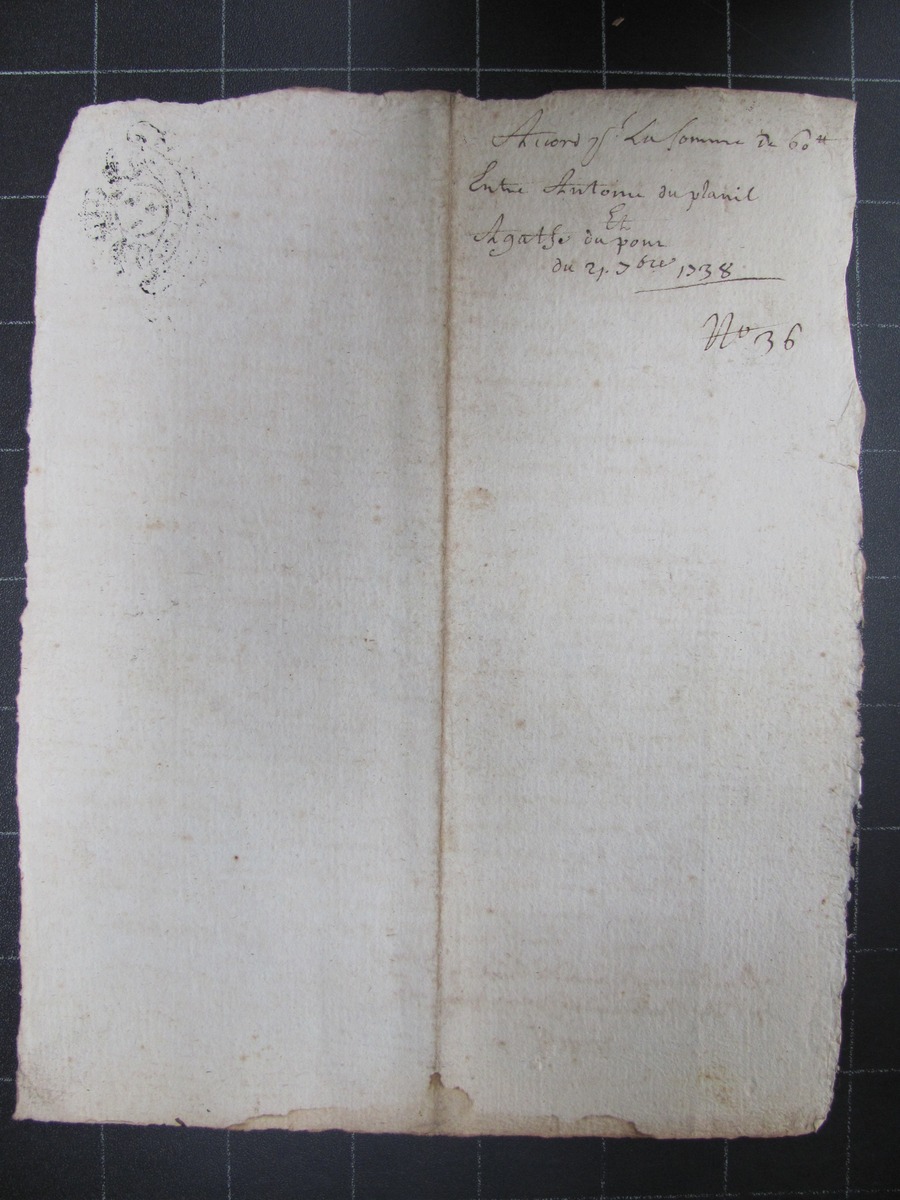 Accord pr La Somme de 60 tt
Entre Antoine du planil
Et
Agathe dupour
du 21. 7bre 1738
No 36